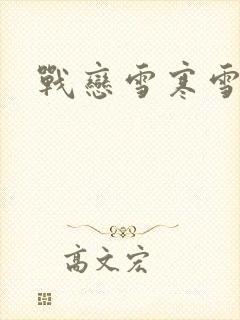 戰戀雪寒雪
高文宏